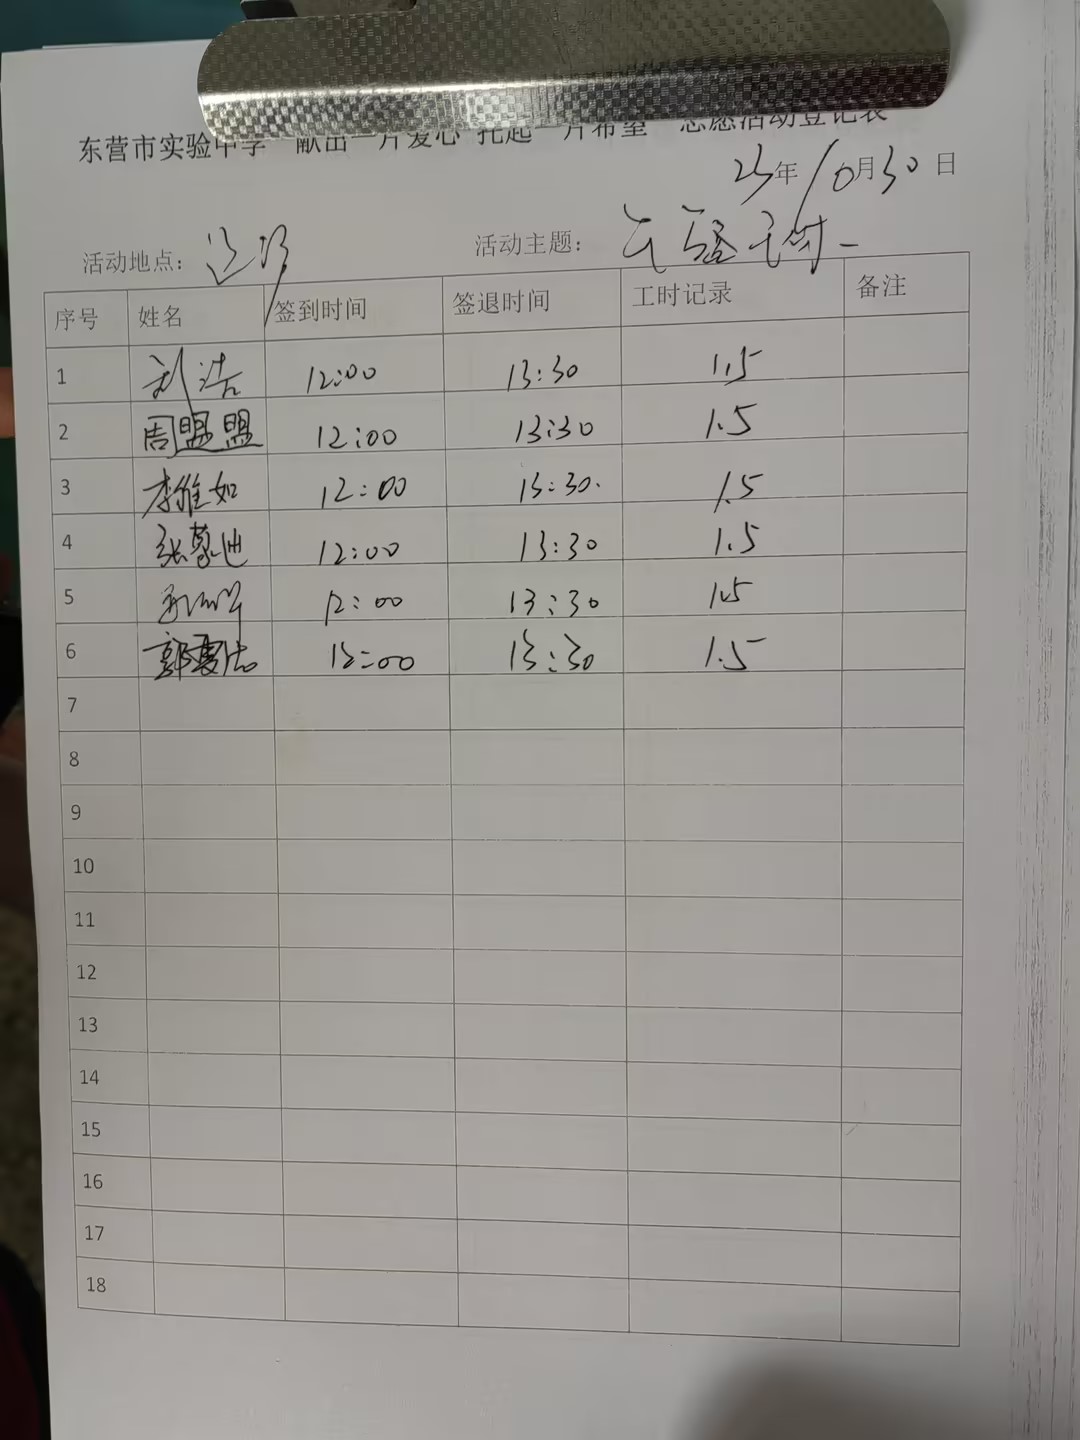 东营市实验中学 献出一片爱心 托起一片希望 志愿活动登记表
23年10月30日
活动地点： 活动主题：
序号 姓名 签到时间 签退时间 工时记录 备注
1 刘浩 12:00 13:30 1.5
2 周盟盟 12:00 13:30 1.5
3 李维如 12:00 13:30. 1.5
4 张慕迪 12:00 13:30 1.5
5 12:00 13:30 1.5
6 郭 12:00 13:30 1.5
7
8
9
10
11
12
13
14
15
16
17
18